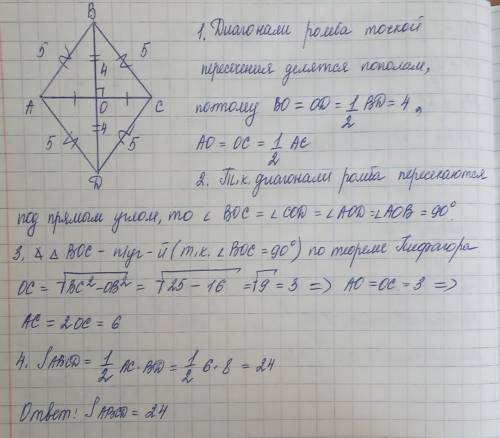 B
5 5
4
A O C
4
5 5
D
1. Диагонали ромба точкой
пересечения делятся пополам,
поэтому BO = OD = 1/2 BD = 4,
AO = OC = 1/2 AC
2. Т.к. диагонали ромба пересекаются
под прямым углом, то ∠ BOC = ∠COD = ∠AOD = ∠AOB = 90°.
3. ∆ BOC - п/уг - й (т.к. ∠BOC = 90°) по теореме Пифагора
OC = √BC² - OB² = √25 - 16 = √9 = 3 => AO = OC = 3 =>
AC = 2OC = 6
4. SABCD = 1/2 AC · BD = 1/2 6 · 8 = 24
Ответ: SABCD = 24